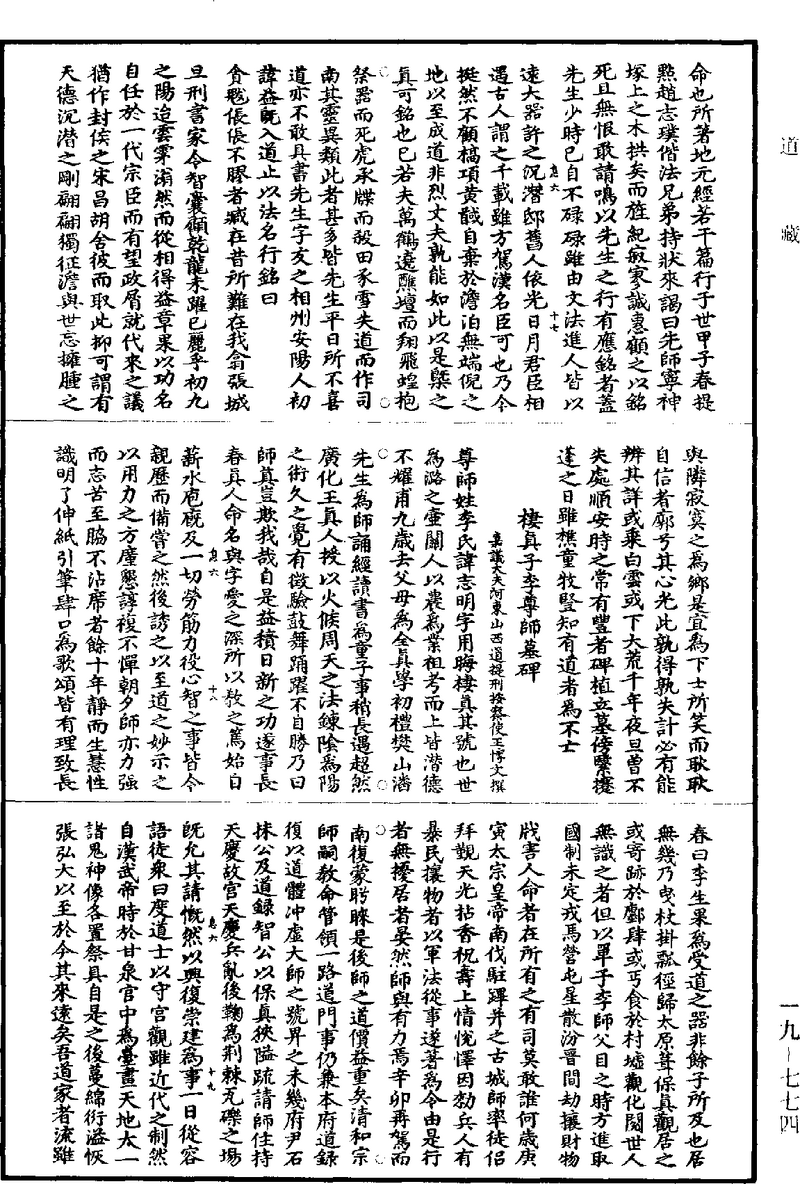 道藏
一九-七七四
命也所著地元經若干篇行于世甲子春提
點趙志璞偕法兄弟持狀來謁曰先師寧神
塚上之木拱矣而旌紀寂寥誠惠顧之以銘
死且無恨敢請鳴以先生之行有應銘者蓋
先生少時已自不碌碌雖由文法進人皆以
遠大器許之沉潛邸舊人依光日月君臣相
息六
十七
遇古人謂之千載雖方駕漢名臣可也乃今
挺然不顧槁項黃馘自棄於澹泊無端倪之
地以至成道非烈丈夫孰能如此以是槩之
真可銘也已若夫萬鶴遶醮壇而翔飛蝗抱
祭器而死虎承牒而殺田豕雪失道而作司
南其靈異類此者甚多皆先生平日所不喜
道亦不敢具書先生字友之相州安陽人初
諱益既入道止以法名行銘曰
貪戁倀倀不膠者臧在昔所難在我翕張城
旦刑書家令智囊顧乾龍未躍已麗乎初九
之陽迨雲霈滃然而從相得益章果以功名
自任於一代宗臣而有望政眉就代來之議
猶作封侯之宋昌胡舍彼而取此抑可謂有
天德沉潛之剛翩翩獨征澹與世忘擁腫之
與隣寂寞之為鄉是宜為下士所笑而耿耿
自信者廓兮其心光此孰得孰失計必有能
辨其詳或乘白雲或下大荒千年夜旦曾不
失處順安時之常有豐者碑植立墓傍繄攓
蓬之日雖樵童牧豎知有道者為不亡
棲真子李尊師墓碑
嘉議大夫河東山西道提刑按察使王博文撰
尊師姓李氏諱志明字用晦棲真其號也世
為潞之壷關人以農為業祖考而上皆潛德
不耀甫九歲去父母為全真學初禮樊山潘
先生為師誦經讀書為童子事稍長遇超然
廣化王真人授以火候周天之法鍊陰為陽
之術久之覺有徵驗鼓舞踊躍不自勝乃曰
師真豈欺我哉自是益積日新之功遂事長
春真人命名與字愛之深所以教之篤始自
息六
十八
薪水庖廐及一切勞筋力役心智之事皆令
親歷而備嘗之然後誘之以至道之妙示之
以用力之方廑懇諄複不憚朝夕師亦力強
而志苦至脇不沾席者餘十年靜而生慧性
識明了伸紙引筆肆口為歌頌皆有理致長
春曰李生果為受道之器非餘子所及也居
無幾乃曳杖掛瓢徑歸太原葺保真觀居之
或寄跡於鄽肆或丐食於村墟觀化閱世人
無識之者但以單子李師父目之時方進取
國制未定戎馬營屯星散汾晉間劫攘財物
戕害人命者在所有之有司莫敢誰何歲庚
寅太宗皇帝南伐駐蹕并之古城師率徒侶
拜覲天光拈香祝壽上情悅懌因勑兵人有
暴民攘物者以軍法從事遂著為令由是行
者無擾居者晏然師與有力焉辛卯再駕而
南復蒙眄睞是後師之道價益重矣清和宗
師嗣教命管領一路道門事仍兼本府道錄
復以道體冲虛大師之號畀之未幾府尹石
抹公及道錄智公以保真狹隘疏請師住持
天慶故宮天慶兵亂後鞠為荊棘瓦礫之場
息六
十九
既允其請慨然以興復崇建為事一日從容
語徒衆曰度道士以守宮觀雖近代之制然
自漢武帝時於甘泉宮中為臺畫天地太一
諸鬼神像各置祭具自是之後蔓綿衍溢恢
張弘大以至於今其來遠矣吾道家者流雖